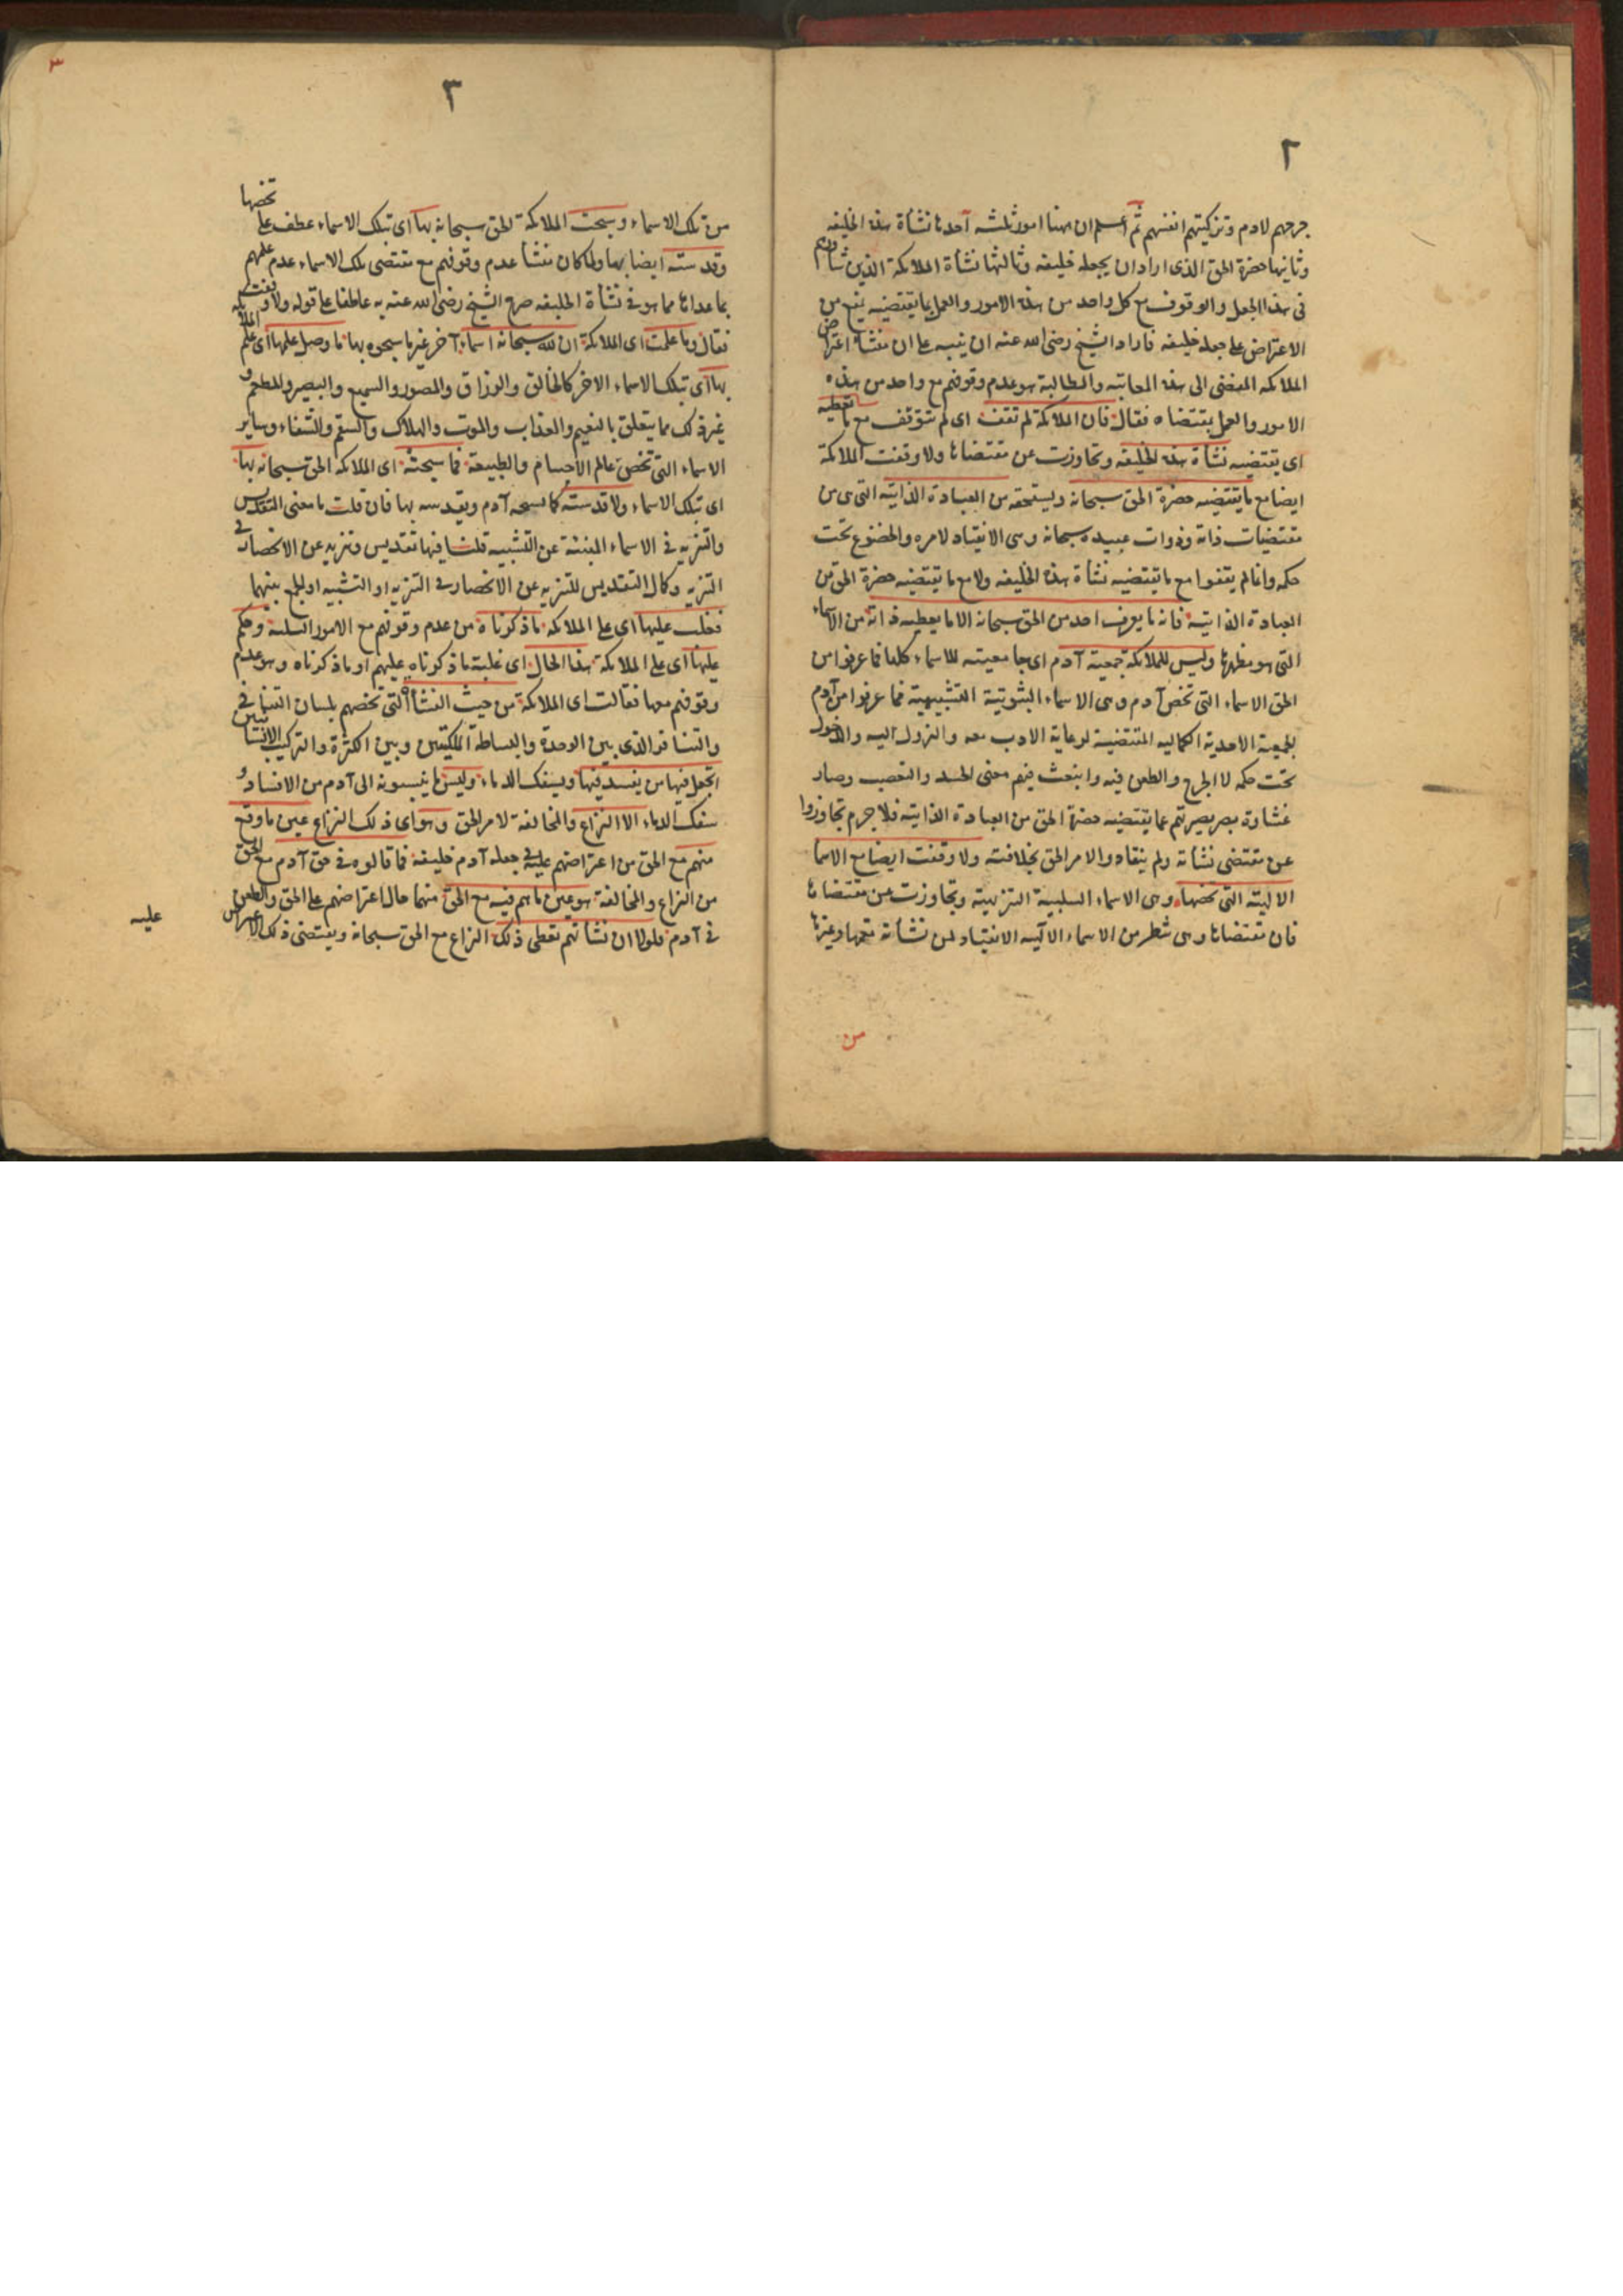 ٢
جرحهم لادم وتزكيتهم انفسهم ثم اعلم ان ههنا امور ثلثة احدها نشأة هذه الخليفه
وثانيها حضرة الحق الذى اراد ان يجعله خليفه وثالثها نشأة الملائكة الذين شاورهم
فى هذا الجعل والوقوف مع كل واحد من هذه الامور والعمل بما يقتضيه يمنع من
الاعتراض على جعله خليفه فاراد الشيخ رضى الله عنه ان ينبه على ان منشأ اعتراض
الملائكه المفضى الى هذه المعاتبه والمطالبة هو عدم وقوفهم مع واحد من هذه
الامور والعمل بمقتضاه فقال فان الملائكة لم تقف اى لم تتوقف مع ما تعطيه
اى يقتضيه نشأة هذه الخليفه وتجاوزت عن مقتضاها ولا وقفت الملائكة
ايضا مع ما يقتضيه حضرة الحق سبحانه ويستحقه من العبادة الذاتيه التى هى من
مقتضيات ذاته وذوات عبيده سبحانه وهى الانقياد لامره والخضوع تحت
حكمه وانما لم يقفوا مع ما يقتضيه نشأة هذه الخليفه ولا مع ما يقتضيه حضرة الحق من
العبادة الذاتية فانه ما يعرف احد من الحق سبحانه الا ما يعطيه ذاته من الاسماء
التى هو مظهرها وليس للملائكة جمعية آدم اى جامعيته للاسماء كلها فما عرفوا من
الحق الاسماء التى تخص آدم وهى الاسماء الثبوتية التشبيهية فما عرفوا من آدم
الجمعية الاحدية الكماليه المقتضية لرعاية الادب معه والنزول اليه والدخول
تحت حكمه لا الجرح والطعن فيه وانبعث فيهم معنى الحسد والتعصب وصار
غشاوة بصر بصيرتهم عما يقتضيه حضرة الحق من العبادة الذاتيه فلا جرم تجاوزوا
عن مقتضى نشأته ولم ينقادوا لامر الحق بخلافته ولا وقفت ايضا مع الاسما
الالهية التى تخصها وهى الاسماء السلبية التنزيهية وتجاوزت عن مقتضاها
فان مقتضاها وهى شطر من الاسماء الالهيه الانقياد لمن نشأته تعمها وغيرها
من
٣
٣
تخصها
من تلك الاسماء وسبحت الملائكة الحق سبحانه بها اى بتلك الاسماء عطف على
وقدسته ايضا بها ولما كان منشأ عدم وقوفهم مع مقتضى تلك الاسماء عدم علمهم
بما عداها مما هو فى نشأة الخليفه صرح الشيخ رضى الله عنه به عاطفا على قوله ولا وقفت الملائكه
فقال وما علمت اى الملائكة ان لله سبحانه اسماء آخر غير ما سبحوه بها ما وصل علمها اى علم
بها اى بتلك الاسماء الاخر كالخالق والرزاق والمصور والسميع والبصير والمطعم و
غير ذلك مما يتعلق بالنعيم والعذاب والموت والهلاك والسقم والشفاء وساير
الاسماء التى تخص عالم الاجسام والطبيعة فما سبحته اى الملائكة الحق سبحانه بها
اى بتلك الاسماء ولا قدسته كما يسبحه آدم ويقدسه بها فان قلت ما معنى التقديس
والتنزيه فى الاسماء المنبئة عن التشبيه قلنا فيها تقديس وتنزيه عن الانحصار فى
التنزيه وكمال التقديس للتنزيه عن الانحصار فى التنزيه او التشبيه او الجمع بينهما
فغلب عليها اى على الملائكه ما ذكرناه من عدم وقوفهم مع الامور الثلثة وحكم
عليها اى على الملائكة هذا الحال اى غلبة ما ذكرناه عليهم او ما ذكرناه وهو عدم
وقوفهم معها فقالت اى الملائكة من حيث النشأة التى تخصهم بلسان التنافى
والتنافر الذى بين الوحدة والبساطة الملكيتين وبين الكثرة والتركيب الانسانيتين
اتجعل فيها من يفسد فيها ويسفك الدماء وليس ما ينسبونه الى آدم من الافساد و
سفك الدماء الا النزاع والمخالفة لامر الحق وهو اى ذلك النزاع عين ما وقع
منهم مع الحق من اعتراضهم عليه فى جعله آدم خليفة فما قالوه فى حق آدم مع الحق
من النزاع والمخالفة هو عين ما هم فيه مع الحق منهما حال اعتراضهم على الحق والطعن
فى آدم فلولا ان نشأتهم تعطى ذلك النزاع مع الحق سبحانه ويقتضى ذلك الاعتراض
عليه